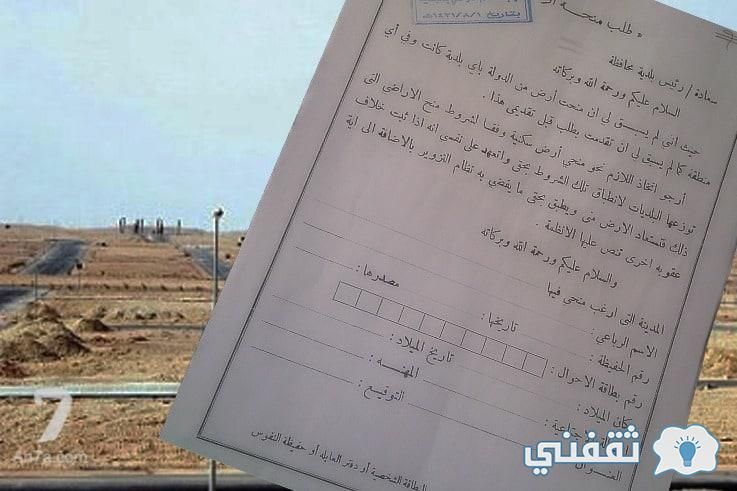 بتاريخ ١٤٣١/٨/١هـ
* طلب منحة
سعادة / رئيس بلدية محافظة
السلام عليكم ورحمة الله وبركاته
حيث اني لم يسبق لي ان منحت أرض من الدولة باي بلدية كانت وفي أي
منطقة كما لم يسبق لي ان تقدمت بطلب قبل تقديمي هذا .
أرجو اتخاذ اللازم نحو منحي أرض سكنية وفقا لشروط منح الاراضي التي
توزعها البلديات لانطباق تلك الشروط بحقي واتعهد على نفسي انه اذا ثبت خلاف
ذلك فتستعاد الارض مني ويطبق بحقي ما يقضي به نظام التزوير بالاضافة الى اية
عقوبه اخرى تنص عليها الانظمة .
والسلام عليكم ورحمة الله وبركاته
المدينة التي ارغب منحي فيها
الاسم الرباعي :
رقم الحفيظة : تاريخها : مصدرها :
رقم بطاقة الاحوال :
مكان الميلاد : تاريخ الميلاد :
الاجتماعية : المهنه :
العنوان التوقيع :
البطاقة الشخصية أو دفتر العايله أو حفيظة النفوس
ثقفني
7
An7a.com